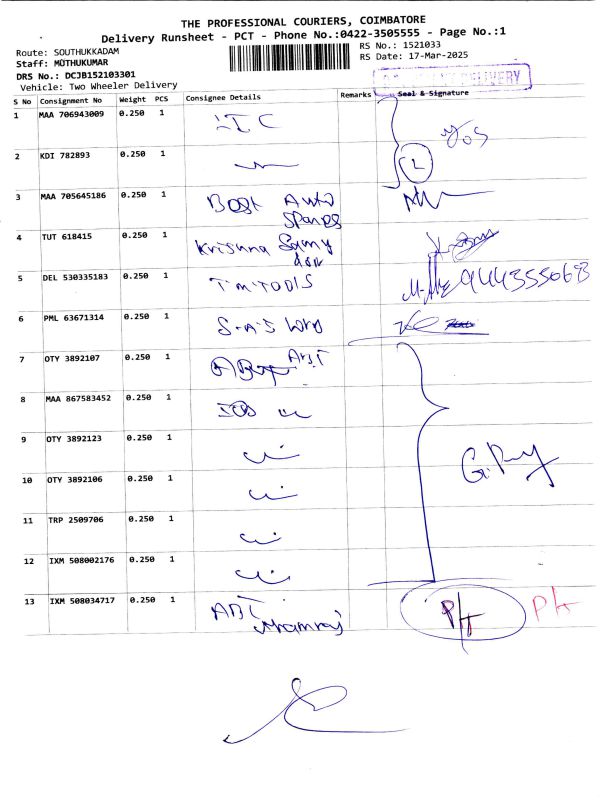 THE PROFESSIONAL COURIERS, COIMBATORE
Delivery Runsheet - PCT - Phone No.:0422-3505555 - Page No.:1
Route: SOUTHUKKADAM
RS No.: 1521033
Staff: MUTHUKUMAR
RS Date: 17-Mar-2025
DRS No.: DCJB152103301
Vehicle: Two Wheeler Delivery
DELIVERY
S No Consignment No Weight PCS Consignee Details Remarks Seal & Signature
1 MAA 706943009 0.250 1
2 KDI 782893 0.250 1
3 MAA 705645186 0.250 1 Best Auto
Spares
4 TUT 618415 0.250 1 Krishna Samy
5 DEL 530335183 0.250 1 TM TOOLS 9443355068
6 PML 63671314 0.250 1
7 OTY 3892107 0.250 1
8 MAA 867583452 0.250 1 IOB
9 OTY 3892123 0.250 1
10 OTY 3892106 0.250 1
11 TRP 2509706 0.250 1
12 IXM 508002176 0.250 1
13 IXM 508034717 0.250 1